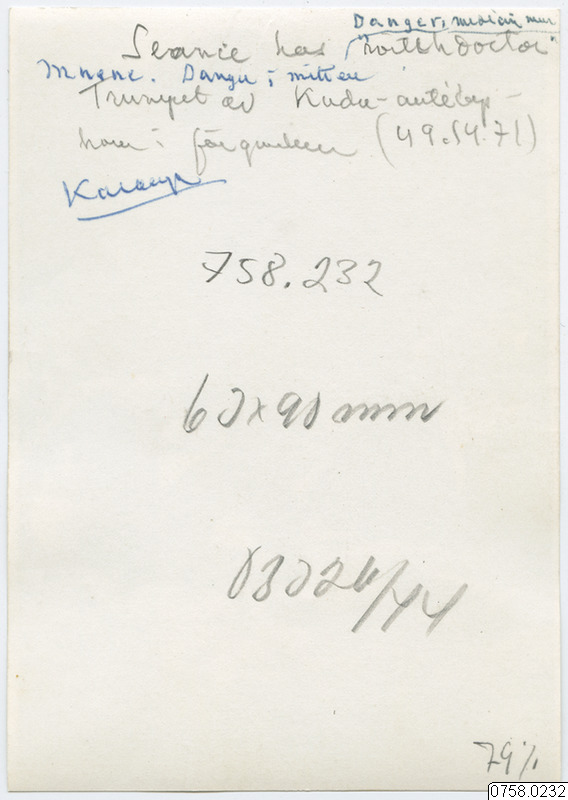 Danger, medicin man
Seance hos "witchdoctor"
Mnene. Dangu i mitten
Trumpet av Kudu-antilop-
horn i förgrunden (49.54.71)
Karanga
758.232
60x90 mm
/44
79%
0758.0232